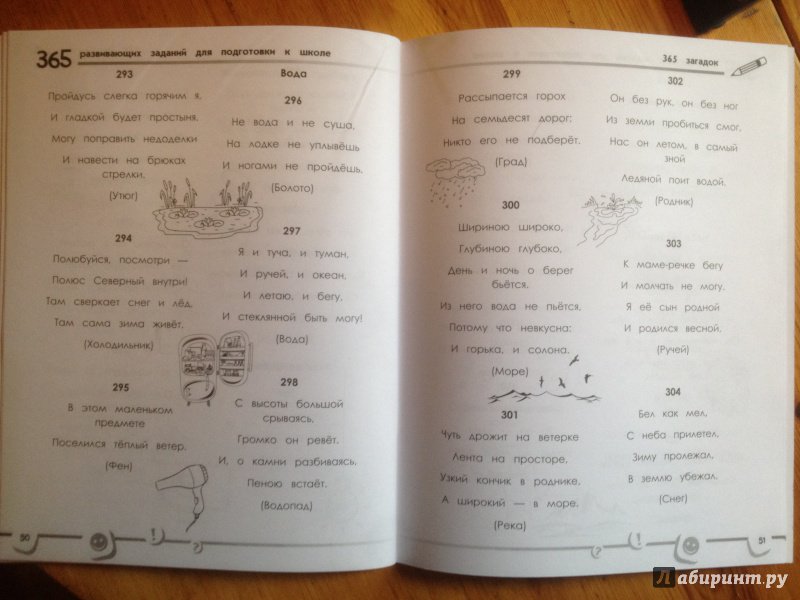 365 развивающих заданий для подготовки к школе
293
Пройдусь слегка горячим я,
И гладкой будет простыня.
Могу поправить недоделки
И навести на брюках
стрелки.
(Утюг)
294
Полюбуйся, посмотри —
Полюс Северный внутри!
Там сверкает снег и лёд,
Там сама зима живёт.
(Холодильник)
295
В этом маленьком
предмете
Поселился тёплый ветер.
(Фен)
Вода
296
Не вода и не суша,
На лодке не уплывёшь
И ногами не пройдёшь.
(Болото)
297
Я и туча, и туман,
И ручей, и океан,
И летаю, и бегу,
И стеклянной быть могу!
(Вода)
298
С высоты большой
срываясь,
Громко он ревёт.
И, о камни разбиваясь,
Пеною встаёт.
(Водопад)
50
365 загадок
299
Рассыпается горох
На семьдесят дорог:
Никто его не подберёт.
(Град)
300
Шириною широко,
Глубиною глубоко,
День и ночь о берег
бьётся.
Из него вода не пьётся,
Потому что невкусна:
И горька, и солона.
(Море)
301
Чуть дрожит на ветерке
Лента на просторе,
Узкий кончик в роднике,
А широкий — в море.
(Река)
302
Он без рук, он без ног
Из земли пробиться смог,
Нас он летом, в самый
зной
Ледяной поит водой.
(Родник)
303
К маме-речке бегу
И молчать не могу.
Я её сын родной
И родился весной.
(Ручей)
304
Бел как мел,
С неба прилетел.
Зиму пролежал,
В землю убежал.
(Снег)
51
Лабиринт.ру